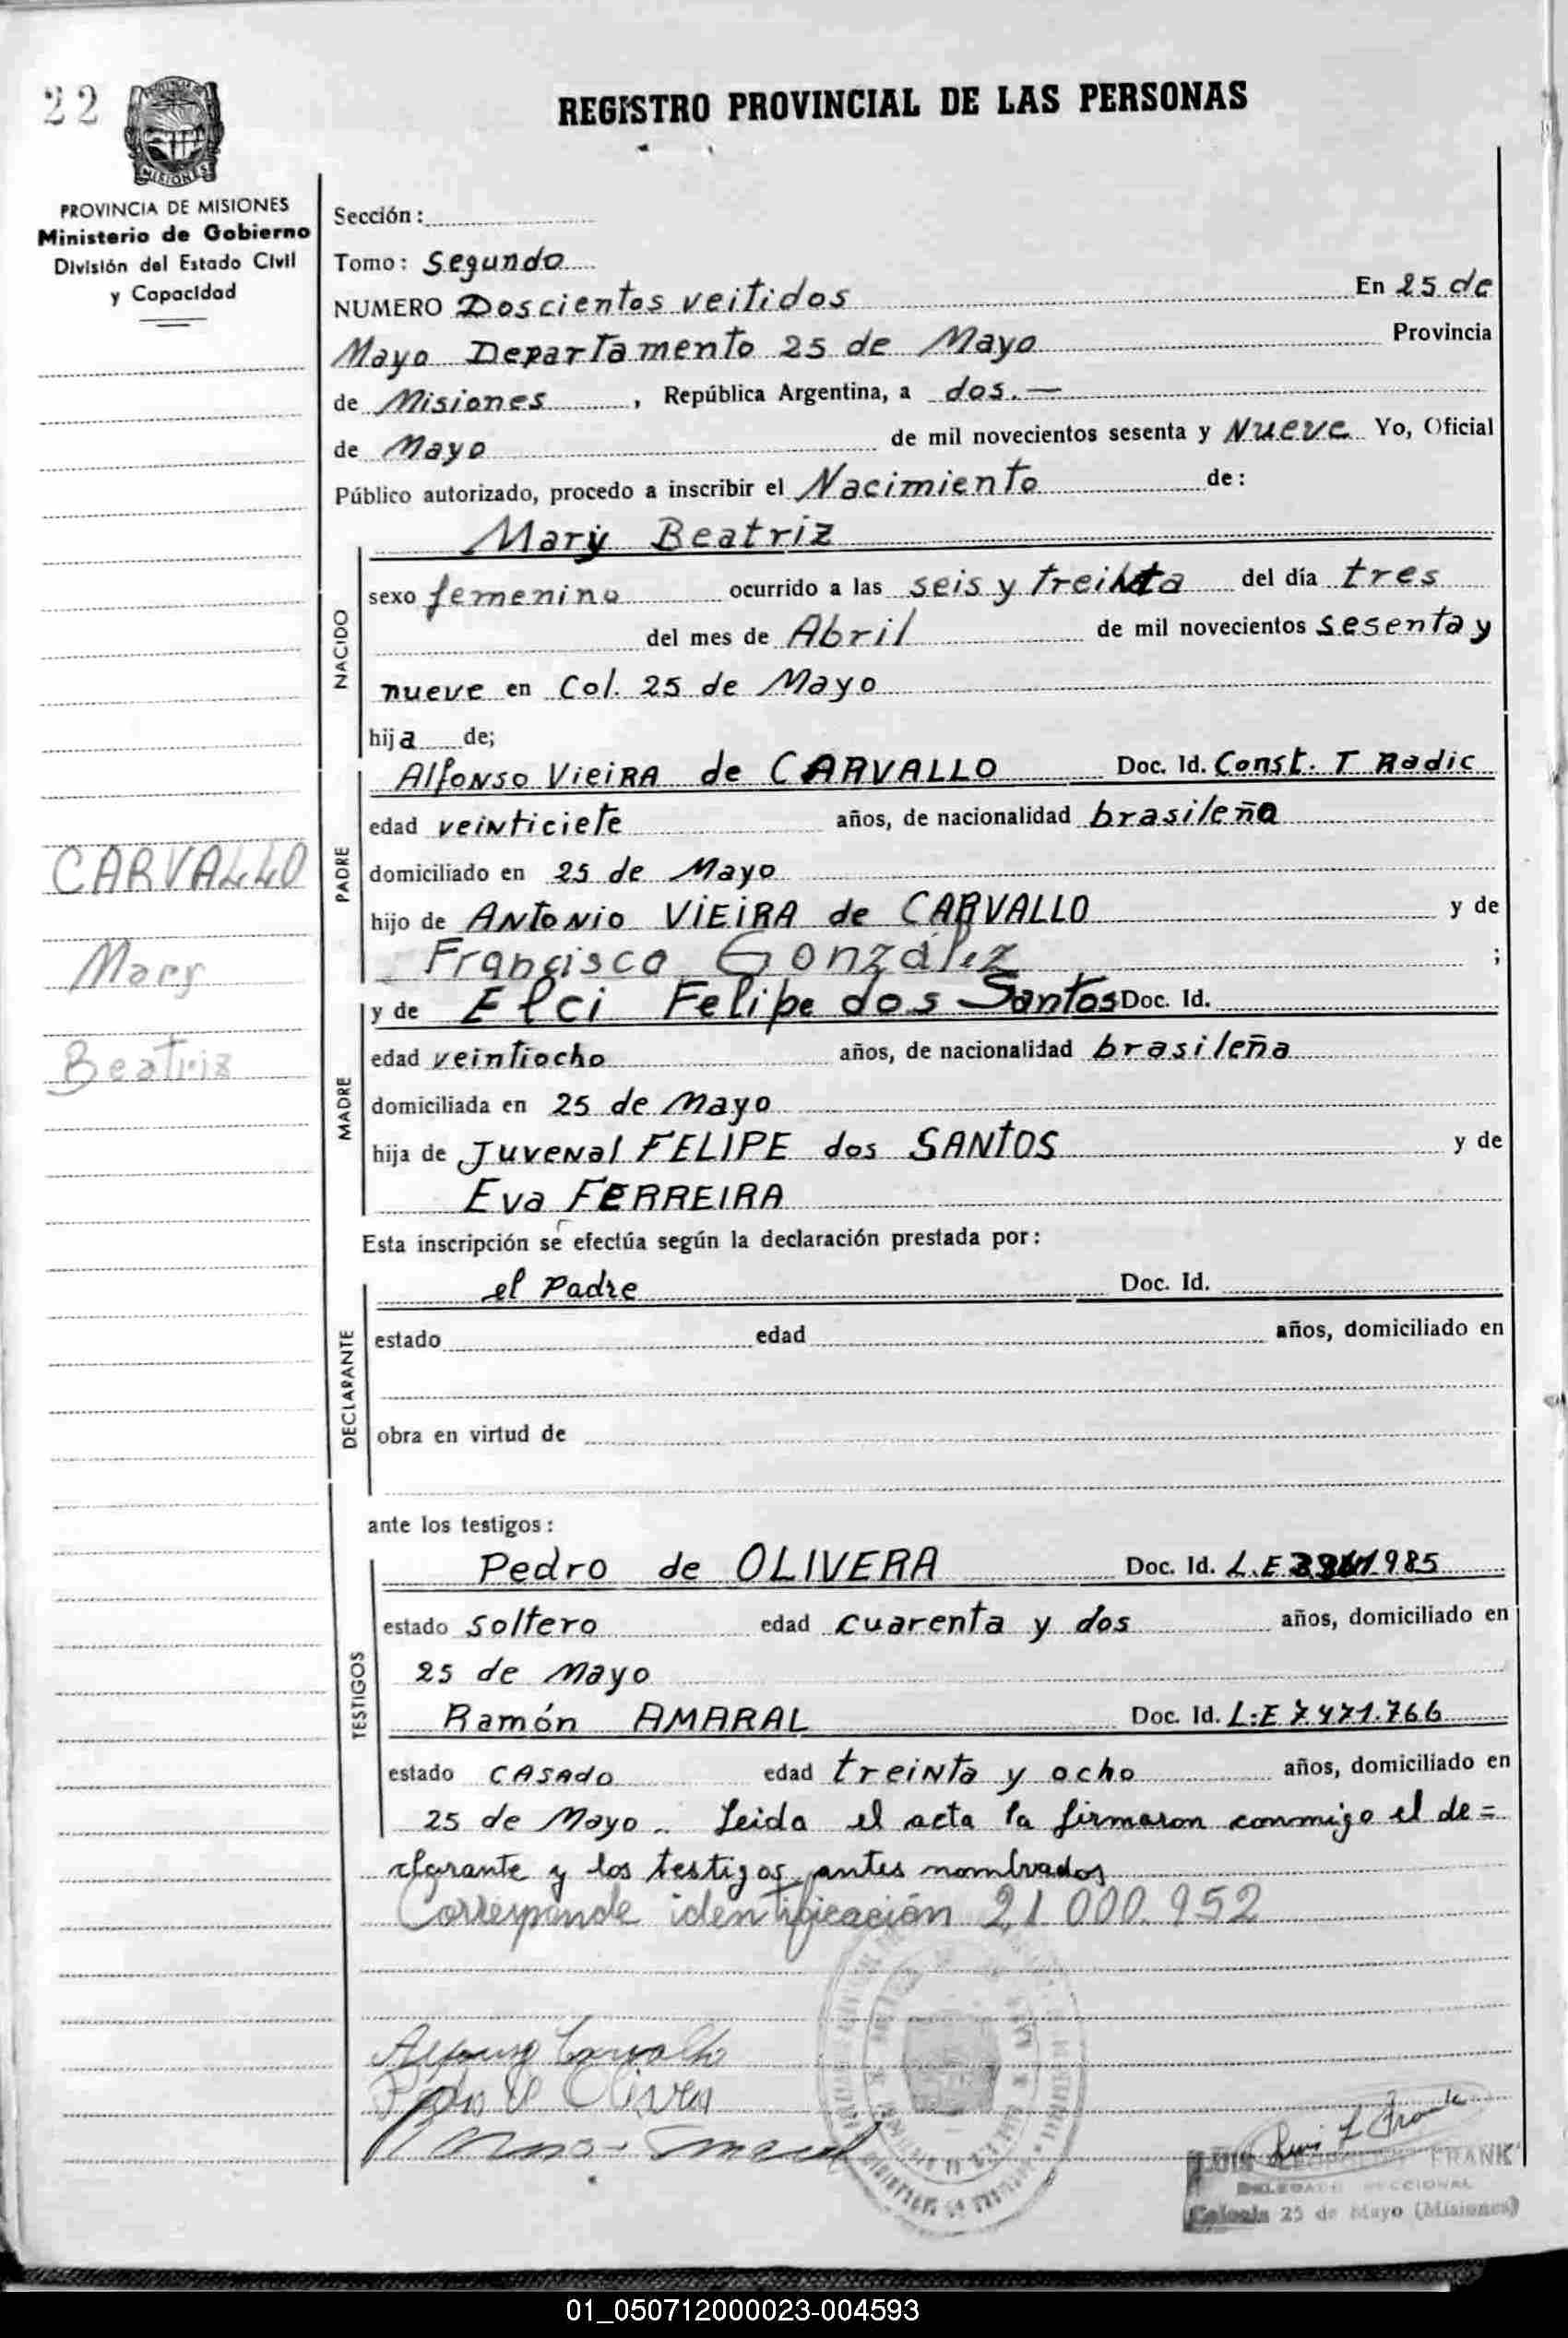 22
REGISTRO PROVINCIAL DE LAS PERSONAS
MISIONES
PROVINCIA DE MISIONES
Ministerio de Gobierno
División del Estado Civil
y Capacidad
Sección:
Tomo: Segundo
NUMERO Doscientos veitidos En 25 de
Mayo Departamento 25 de Mayo Provincia
de Misiones, República Argentina, a dos.—
de Mayo de mil novecientos sesenta y Nueve Yo, Oficial
Público autorizado, procedo a inscribir el Nacimiento de:
Mary Beatriz
NACIDO
sexo femenino ocurrido a las seis y treinta del día tres
del mes de Abril de mil novecientos sesenta y
nueve en Col. 25 de Mayo
hija de;
Alfonso Vieira de CARVALLO Doc. Id. Const. T Radic
PADRE
edad veinticiete años, de nacionalidad brasileña
domiciliado en 25 de Mayo
hijo de Antonio VIEIRA de CARVALLO y de
Francisca González ;
CARVALLO
Mary
Beatriz
y de Elci Felipe dos Santos Doc. Id.
MADRE
edad veintiocho años, de nacionalidad brasileña
domiciliada en 25 de Mayo
hija de Juvenal FELIPE dos SANTOS y de
Eva FERREIRA
Esta inscripción se efectúa según la declaración prestada por:
el Padre Doc. Id.
DECLARANTE
estado edad años, domiciliado en
obra en virtud de
ante los testigos:
Pedro de OLIVERA Doc. Id. L.E 985
TESTIGOS
estado soltero edad cuarenta y dos años, domiciliado en
25 de Mayo
Ramón AMARAL Doc. Id. L:E 7.471.766
estado CASADO edad treinta y ocho años, domiciliado en
25 de Mayo.. Leida el acta la firmaron conmigo el de=
clarante y los testigos antes nombrados
Corresponde identificación 21.000.952
Carvalho
Olivera
Luis L Frank
LUIS LEOPOLDO FRANK
DELEGADO SECCIONAL
Colonia 25 de Mayo (Misiones)
01_050712000023-004593